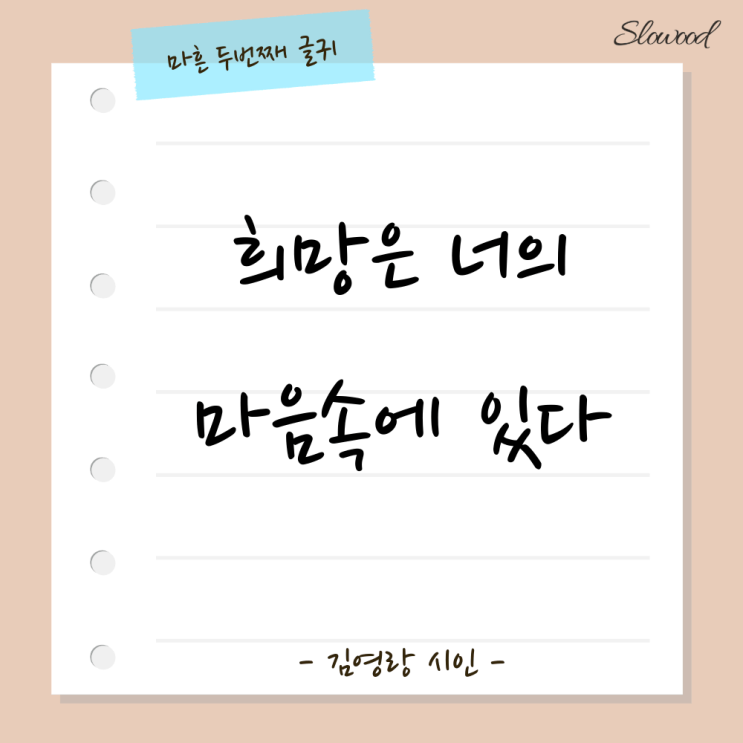 마흔 두번째 글귀
Slowood
희망은 너의
마음속에 있다
- 김영랑 시인 -